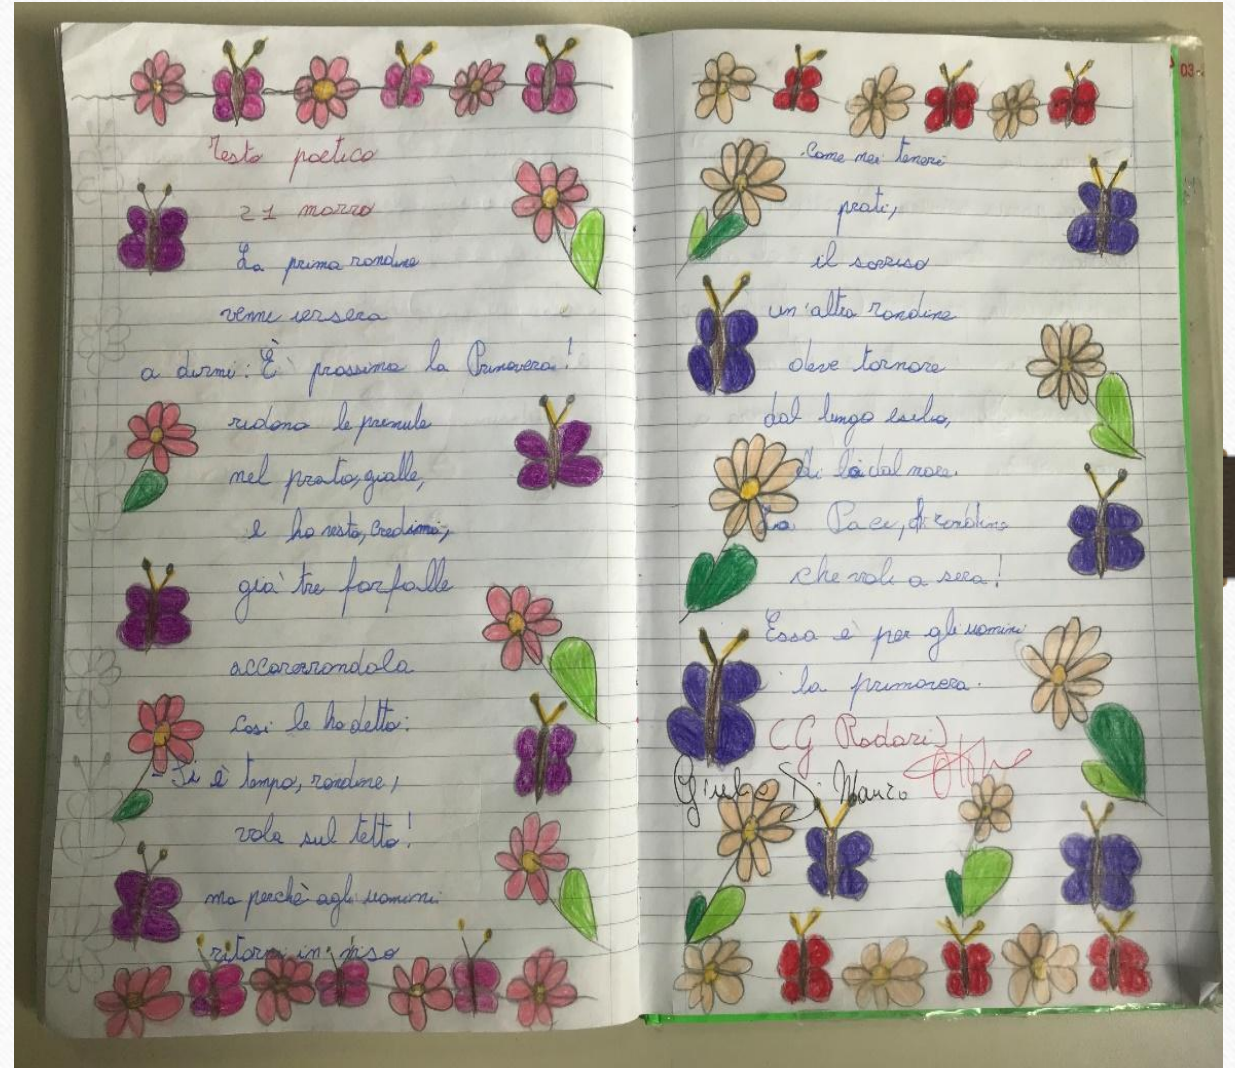 Testo poetico
21 marzo
La prima rondine
venne iersera
a dirmi: È prossima la Primavera!
ridono le primule
nel prato, gialle,
e ho visto, credimi,
già tre farfalle
accarezzandola
così le ho detto:
- Sì è tempo, rondine,
vola sul tetto!
ma perchè agli uomini
ritorni in viso
Come nei teneri
prati,
il sorriso
un'altra rondine
deve tornare
dal lungo esilio,
di là dal mare.
La Pace, rondine
che voli a sera!
Essa è per gli uomini
la primavera.
(G Rodari)
Di Manzo
03-